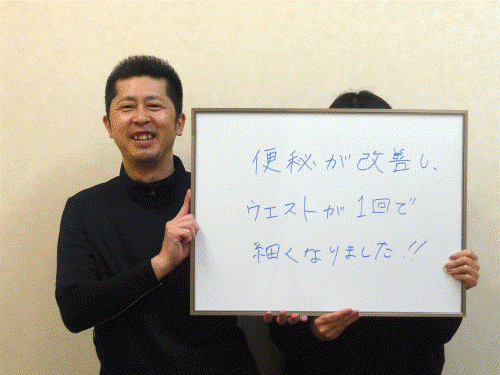 便秘が改善し、
ウエストが1回で
細くなりました!!